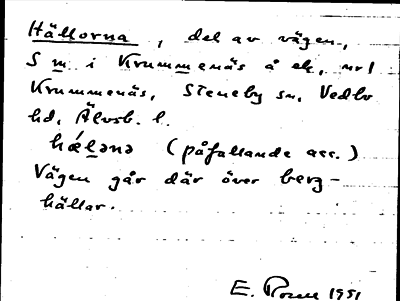 Hällorna, del av vägen,
S m i Krummenäs å ek. nr 1
Krummenäs, Steneby sn, Vedbo
hd, Älvsb. l.
hǽlənə (påfallande acc.)
Vägen går där över berg-
hällar.
E. 1951